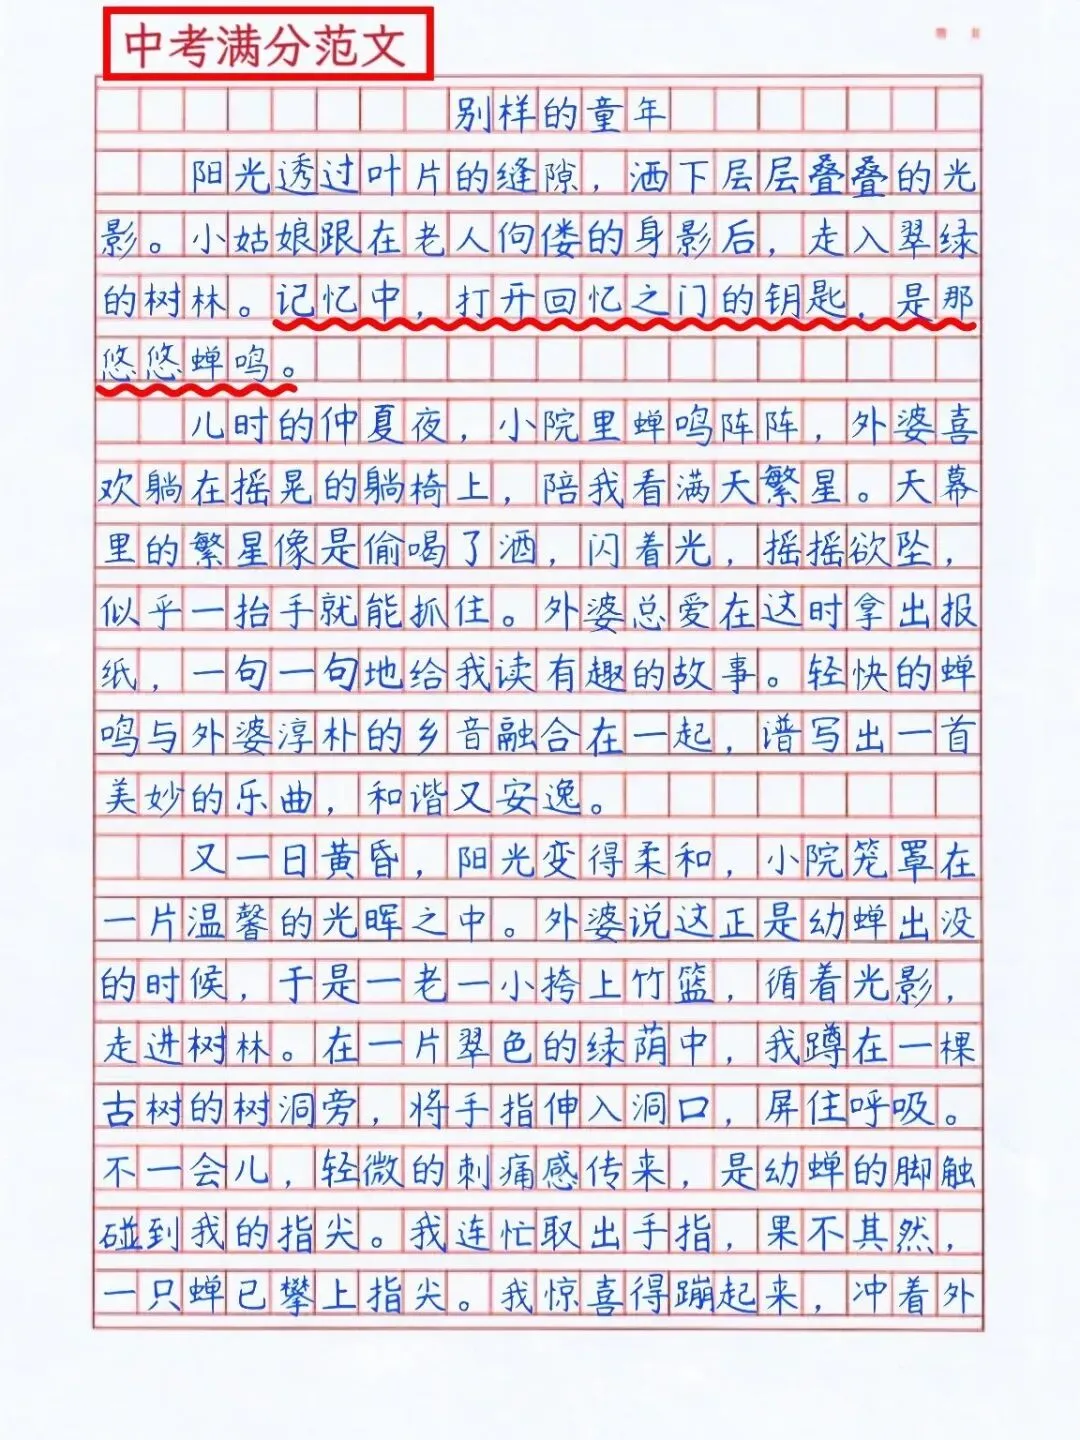 中考满分范文
别样的童年
阳光透过叶片的缝隙，洒下层层叠叠的光
影。小姑娘跟在老人佝偻的身影后，走入翠绿
的树林。记忆中，打开回忆之门的钥匙，是那
悠悠蝉鸣。
儿时的仲夏夜，小院里蝉鸣阵阵，外婆喜
欢躺在摇晃的躺椅上，陪我看满天繁星。天幕
里的繁星像是偷喝了酒，闪着光，摇摇欲坠，
似乎一抬手就能抓住。外婆总爱在这时拿出报
纸，一句一句地给我读有趣的故事。轻快的蝉
鸣与外婆淳朴的乡音融合在一起，谱写出一首
美妙的乐曲，和谐又安逸。
又一日黄昏，阳光变得柔和，小院笼罩在
一片温馨的光晖之中。外婆说这正是幼蝉出没
的时候，于是一老一小挎上竹篮，循着光影，
走进树林。在一片翠色的绿荫中，我蹲在一棵
古树的树洞旁，将手指伸入洞口，屏住呼吸。
不一会儿，轻微的刺痛感传来，是幼蝉的脚触
碰到我的指尖。我连忙取出手指，果不其然，
一只蝉已攀上指尖。我惊喜得蹦起来，冲着外